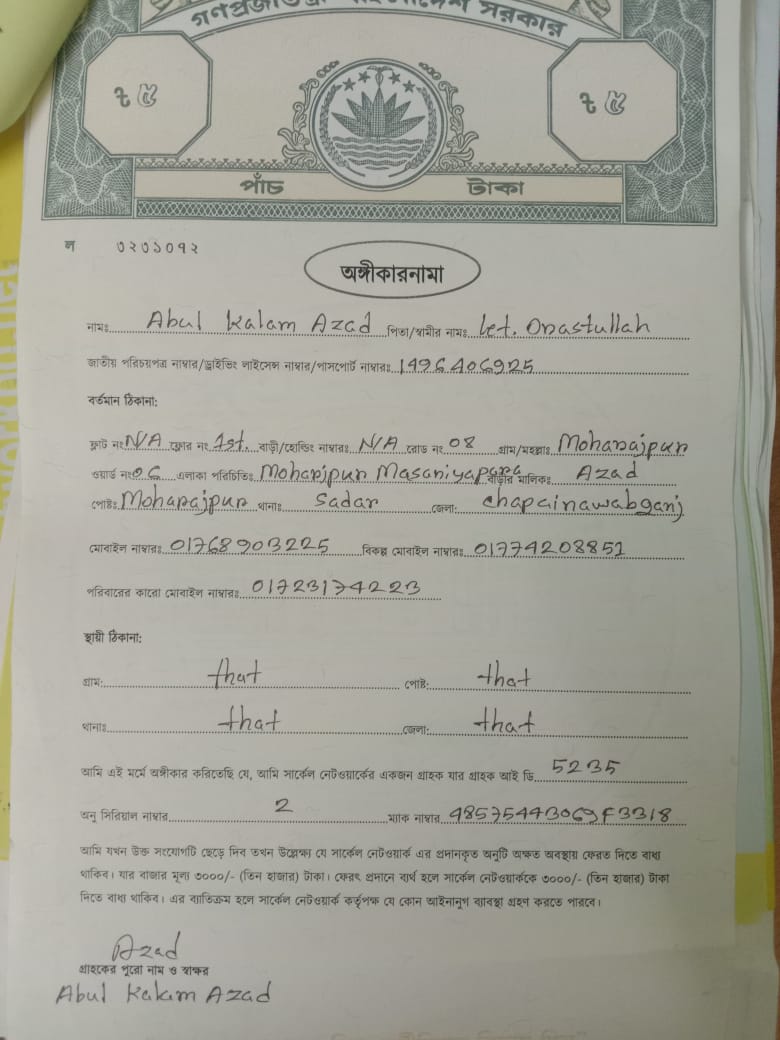 গণপ্রজাতন্ত্রী বাংলাদেশ সরকার
৳ ৫ ৳ ৫
পাঁচ টাকা
ল ৩২৩১০৭২
অঙ্গীকারনামা
নামঃ Abul Kalam Azad পিতা/স্বামীর নামঃ Let. Onastullah
জাতীয় পরিচয়পত্র নাম্বার/ড্রাইভিং লাইসেন্স নাম্বার/পাসপোর্ট নাম্বারঃ 1496406925
বর্তমান ঠিকানা:
ফ্লাট নং N/A ফ্লোর নং 1st. বাড়ী/হোল্ডিং নাম্বারঃ N/A রোড নং 08 গ্রাম/মহল্লাঃ Moharajpur
ওয়ার্ড নং 06 এলাকা পরিচিতিঃ Moharjpur Masaniyapara বাড়ীর মালিকঃ Azad
পোষ্টঃ Moharajpur থানাঃ Sadar জেলা: Chapainawabganj
মোবাইল নাম্বারঃ 01768903225 বিকল্প মোবাইল নাম্বারঃ 01774208851
পরিবারের কারো মোবাইল নাম্বারঃ 01723174223
স্থায়ী ঠিকানা:
গ্রাম: that পোষ্ট: that
থানাঃ that জেলা: that
আমি এই মর্মে অঙ্গীকার করিতেছি যে, আমি সার্কেল নেটওয়ার্কের একজন গ্রাহক যার গ্রাহক আই ডি 5235
অনু সিরিয়াল নাম্বার 2 ম্যাক নাম্বার 48575443069F3318
আমি যখন উক্ত সংযোগটি ছেড়ে দিব তখন উল্লেক্ষ্য যে সার্কেল নেটওয়ার্ক এর প্রদানকৃত অনুটি অক্ষত অবস্থায় ফেরত দিতে বাধ্য
থাকিব। যার বাজার মূল্য ৩০০০/- (তিন হাজার) টাকা। ফেরৎ প্রদানে ব্যর্থ হলে সার্কেল নেটওয়ার্ককে ৩০০০/- (তিন হাজার) টাকা
দিতে বাধ্য থাকিব। এর ব্যাতিক্রম হলে সার্কেল নেটওয়ার্ক কর্তৃপক্ষ যে কোন আইনানুগ ব্যাবস্থা গ্রহণ করতে পারবে।
Azad
গ্রাহকের পুরো নাম ও স্বাক্ষর
Abul Kalam Azad